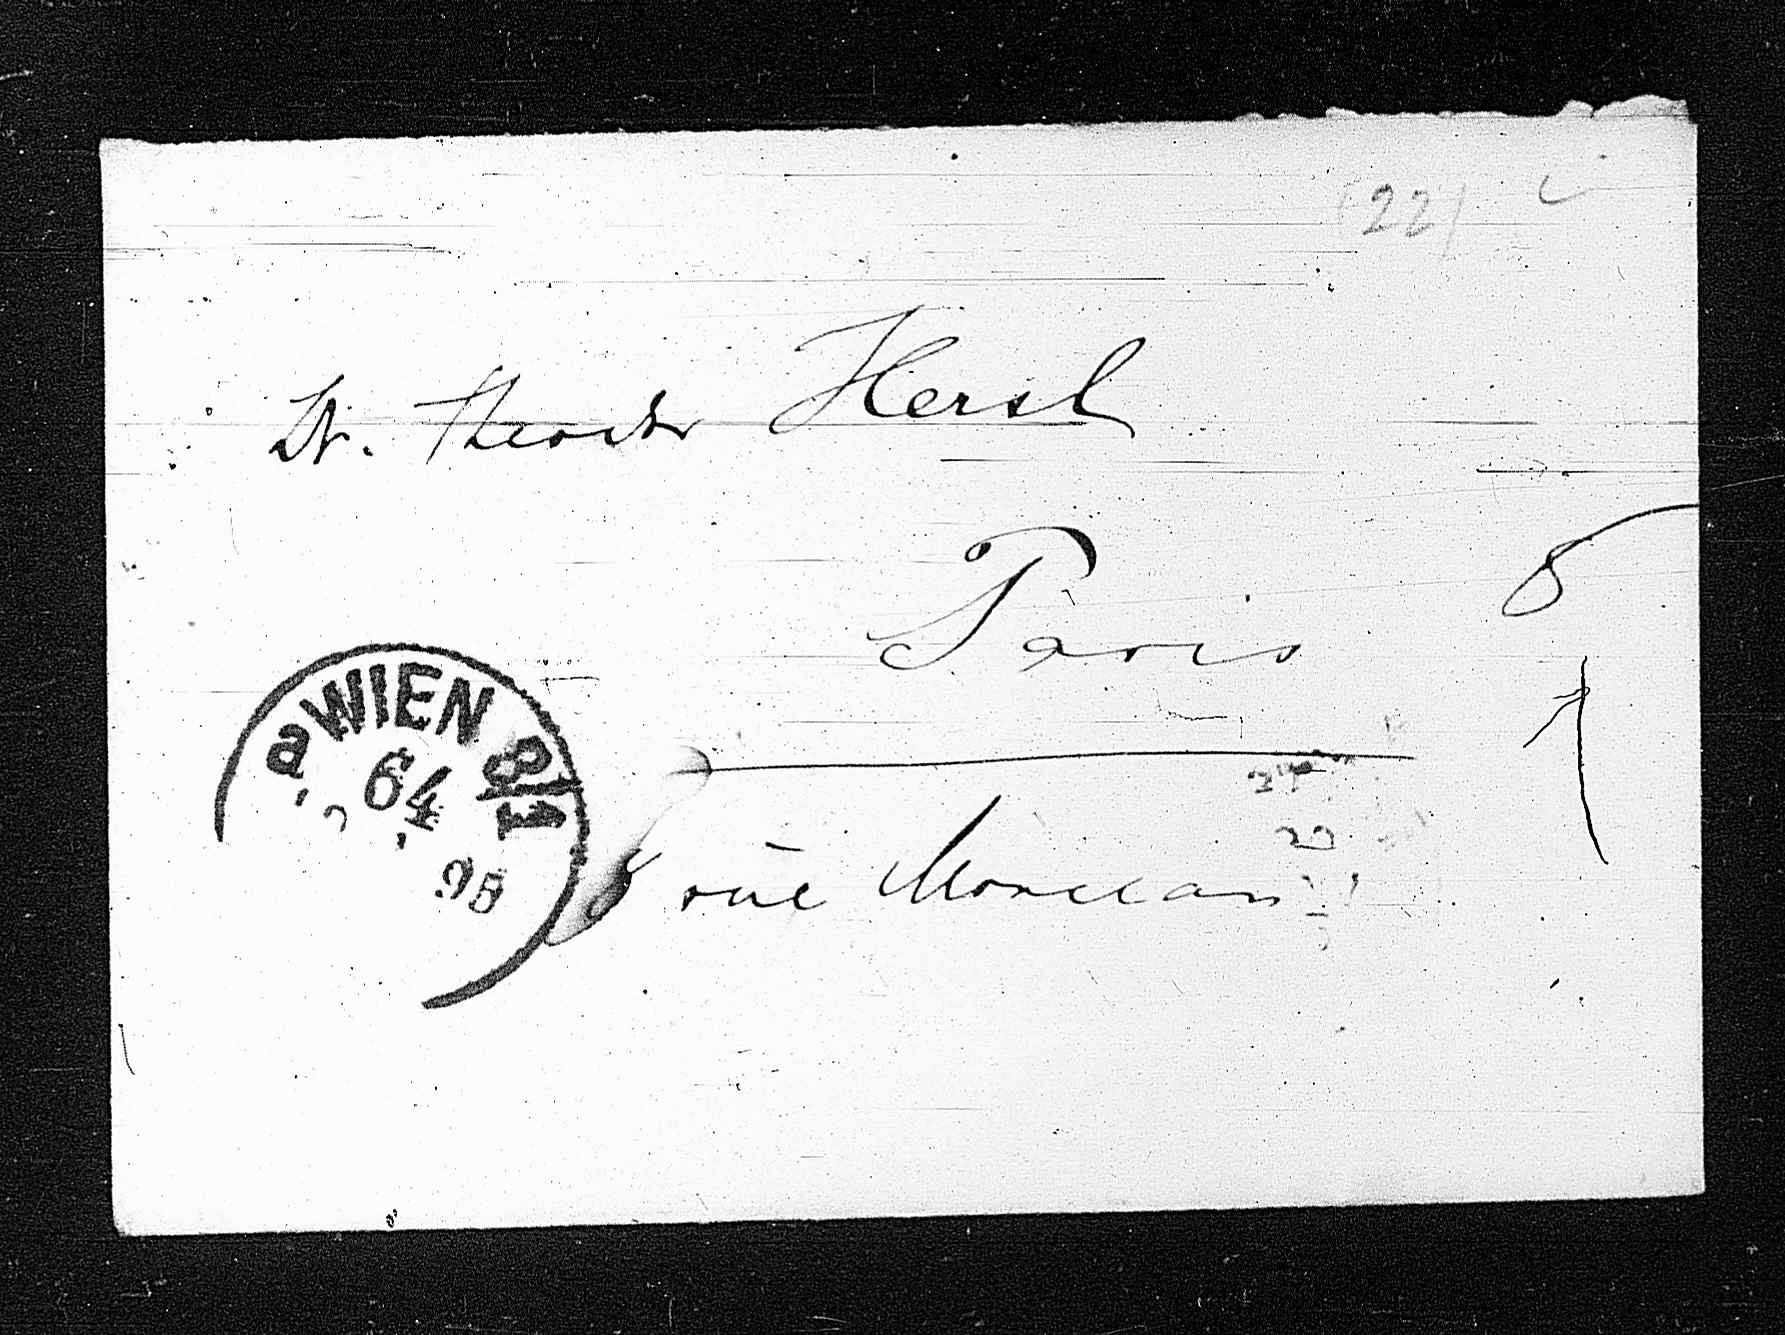 (22)
Dr. Theodor Herzl
Paris
8 rue Monceau
WIEN 8/1
64
95